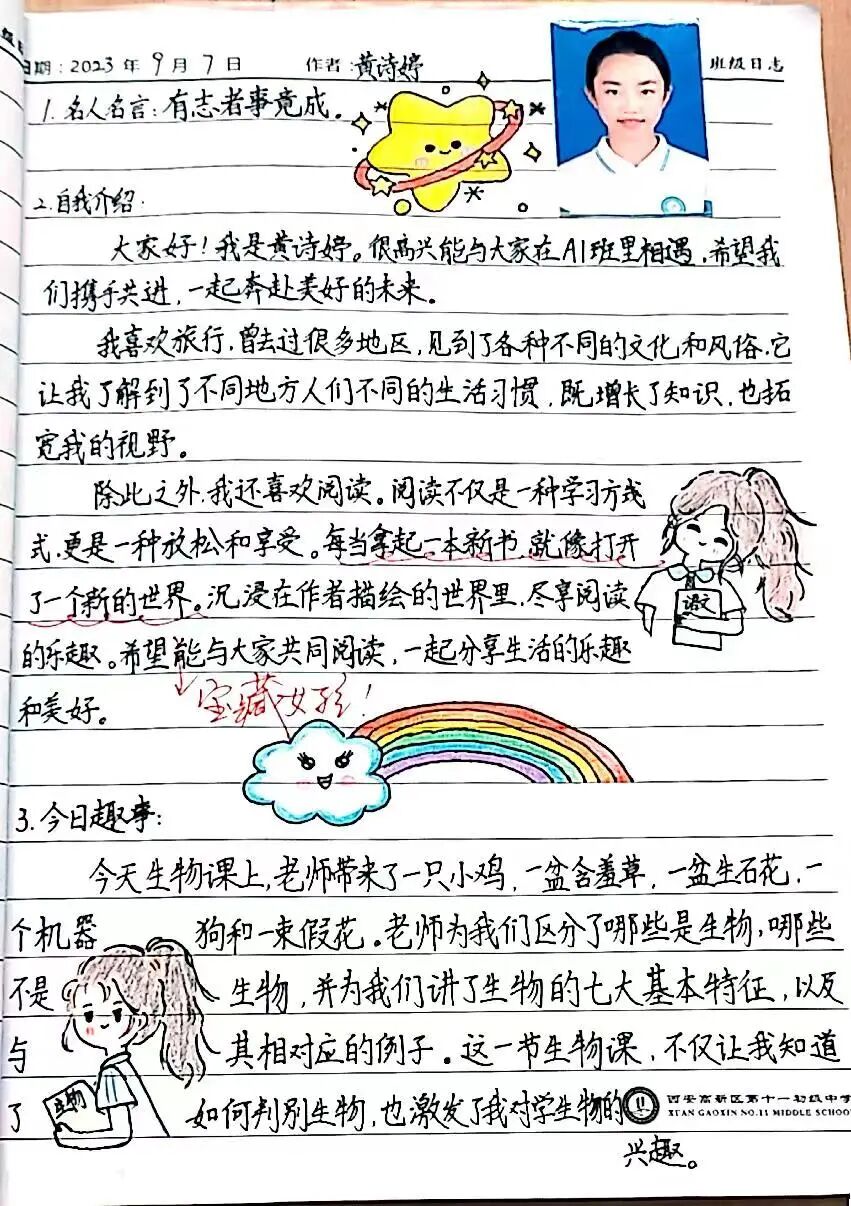 日期：2023年9月7日 作者：黄诗婷 班级日志
1.名人名言：有志者事竟成。
2.自我介绍.
大家好！我是黄诗婷。很高兴能与大家在AI班里相遇，希望我
们携手共进，一起奔赴美好的未来。
我喜欢旅行，曾去过很多地区，见到了各种不同的文化和风俗，它
让我了解到了不同地方人们不同的生活习惯，既增长了知识，也拓
宽我的视野。
除此之外，我还喜欢阅读。阅读不仅是一种学习方式
式，更是一种放松和享受。每当拿起一本新书，就像打开
了一个新的世界。沉浸在作者描绘的世界里，尽享阅读
语文
的乐趣。希望能与大家共同阅读，一起分享生活的乐趣
和美好。
宝藏女孩！
3.今日趣事：
今天生物课上，老师带来了一只小鸡，一盆含羞草，一盆生石花，一
个机器狗和一束假花。老师为我们区分了哪些是生物，哪些
不是生物，并为我们讲了生物的七大基本特征，以及
与其相对应的例子。这一节生物课，不仅让我知道
了如何判别生物，也激发了我对学生物的
兴趣。
生物
西安高新区第十一初级中学
XI'AN GAOXIN NO.11 MIDDLE SCHOOL